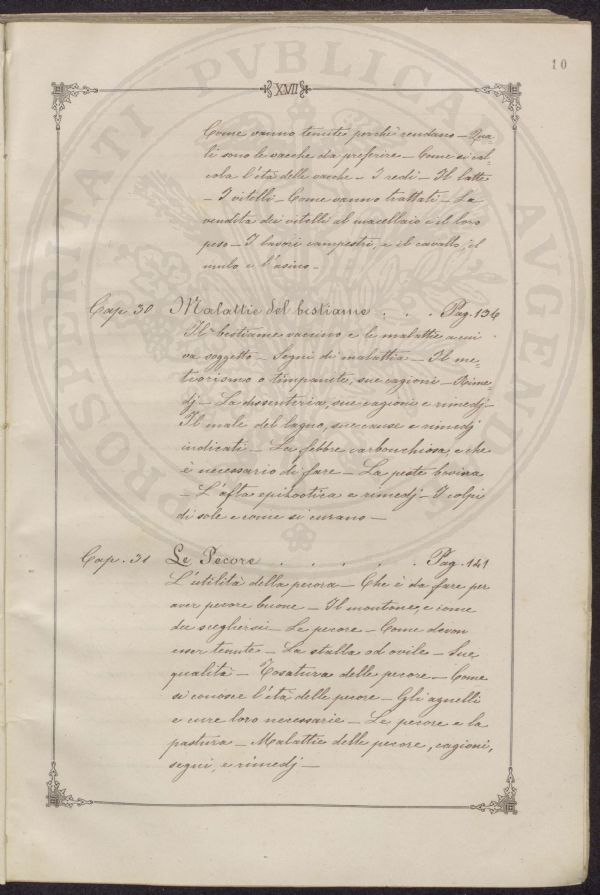 10
XVII
Come vanno tenute perchè rendano — Qua=
li sono le vacche da preferire — Come si cal=
cola l'età delle vacche — I redi — Il latte
— I vitelli — Come vanno trattati — La
vendita dei vitelli al macellaio e il loro
peso — I lavori campestri, e il cavallo, il
mulo e l'asino —
Cap. 30 Malattie del bestiame . . . Pag. 136
Il bestiame vaccino e le malattie a cui
va soggetto — Segni di malattia — Il me=
teorismo o timpanite, sue cagioni — Rime
dj — La dissenteria, sue cagioni e rimedj —
Il male del bagno, sue cause e rimedj
indicati — La febbre carbonchiosa, e che
è necessario di fare — La peste bovina
— L'afta epizootica e rimedj — I colpi
di sole e come si curano —
Cap. 31 Le Pecore . . . . . . Pag. 141
L'utilità della pecora — Che è da fare per
aver pecore buone — Il montone, e come
dee scegliersi — Le pecore — Come devon
esser tenute — La stalla od ovile — Sue
qualità — Tosatura delle pecore — Come
si conosce l'età delle pecore — Gli agnelli
e cure loro necessarie — Le pecore e la
pastura — Malattie delle pecore, cagioni,
segni, e rimedj —
PVBLICAE
AVGENDAE
PROSPERITATI